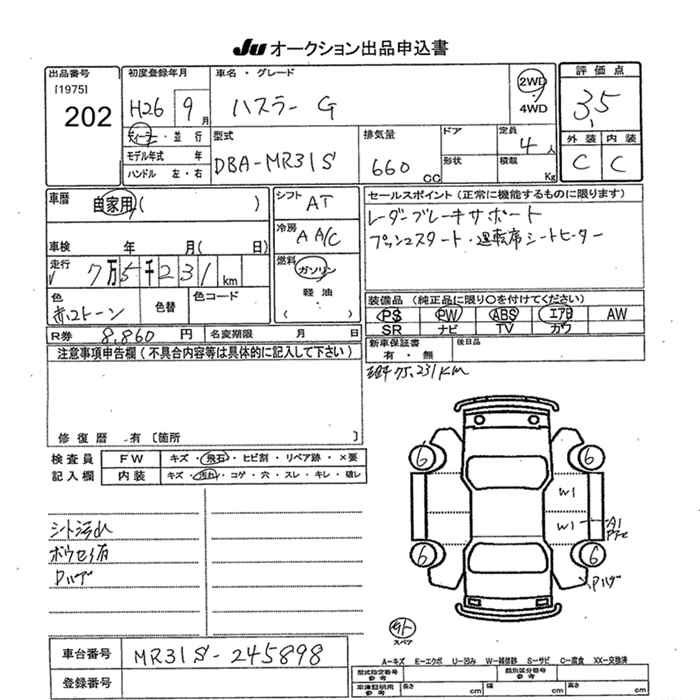 Ju オークション出品申込書
出品番号
[1975]
202
初度登録年月
H26 9月
ディーラー・並行
モデル年式 年
ハンドル 左・右
車名・グレード
ハスラー G
2WD
・
4WD
型式
DBA-MR31S
排気量
660cc
ドア
形状
定員
4人
積載
Kg
評価点
3.5
外装 内装
C C
車歴
自家用( )
車検 年 月( 日)
走行
7万5千231km
色
色替
色コード
シフト
AT
冷房
A A/C
燃料
ガソリン
軽油
( )
セールスポイント(正常に機能するものに限ります)
レーダーブレーキサポート
プッシュスタート・運転席シートヒーター
装備品(純正品に限り○を付けてください)
PS PW ABS エアB AW
SR ナビ TV カワ
新車保証書
有・無
後日品
R券 8,860円
名変期限 月 日
注意事項申告欄(不具合内容等は具体的に記入して下さい)
修復歴 有[箇所 ]
75,231km
検査員
記入欄
FW キズ・飛石・ヒビ割・リペア跡・×要
内装 キズ・汚れ・コゲ・穴・スレ・キレ・破レ
シート汚れ
ボウセイ有
Pハゲ
6 6
W1
W1
A1
6 6
Pハゲ
外
スペア
車台番号 MR31S-245898
登録番号
A-キズ E-エクボ U-凹み W-補修跡 S-サビ C-腐食 XX-交換済
型式指定番号
参考
類別区分番号
参考
車庫証明用
参考
長さ cm 幅 cm 高さ cm